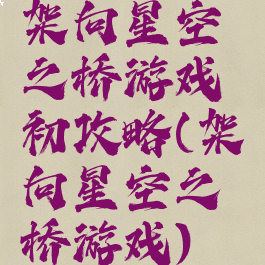 架向星空
之桥游戏
初攻略(架
向星空之
桥游戏)